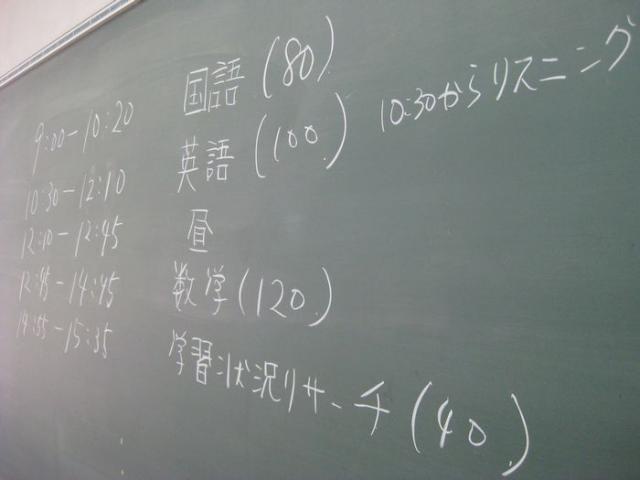 9:00-10:20 国語 (80)
10:30-12:10 英語 (100) 10:30からリスニング
12:10-12:45 昼
12:45-14:45 数学 (120)
14:55-15:35 学習状況リサーチ (40)